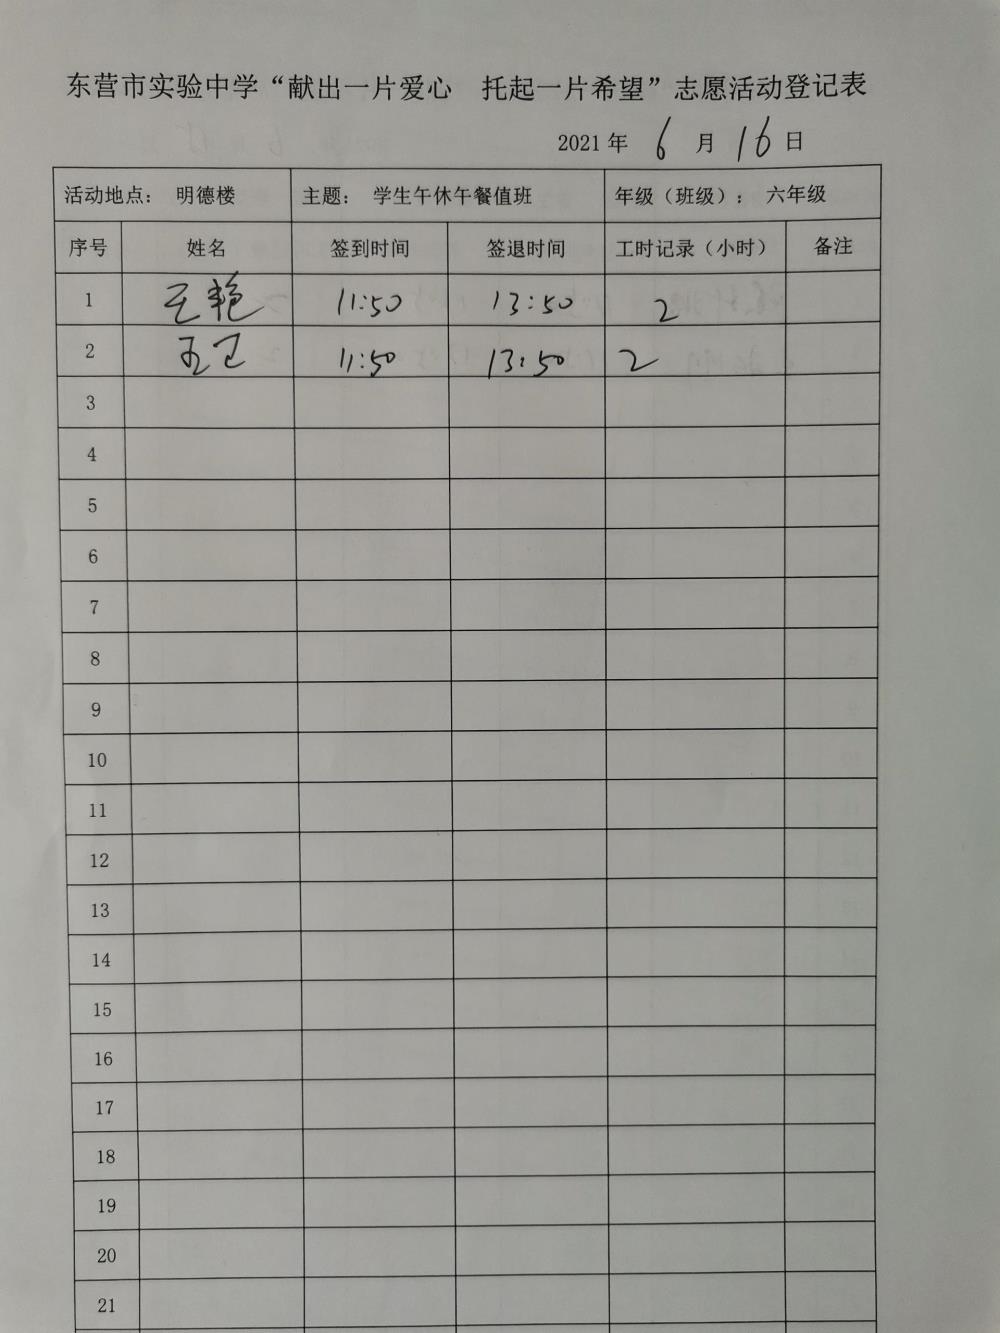 东营市实验中学“献出一片爱心 托起一片希望”志愿活动登记表
2021 年 6 月 16 日
活动地点： 明德楼 主题： 学生午休午餐值班 年级（班级）： 六年级
序号 姓名 签到时间 签退时间 工时记录（小时） 备注
1 王艳 11:50 13:50 2
2 王卫 11:50 13:50 2
3
4
5
6
7
8
9
10
11
12
13
14
15
16
17
18
19
20
21